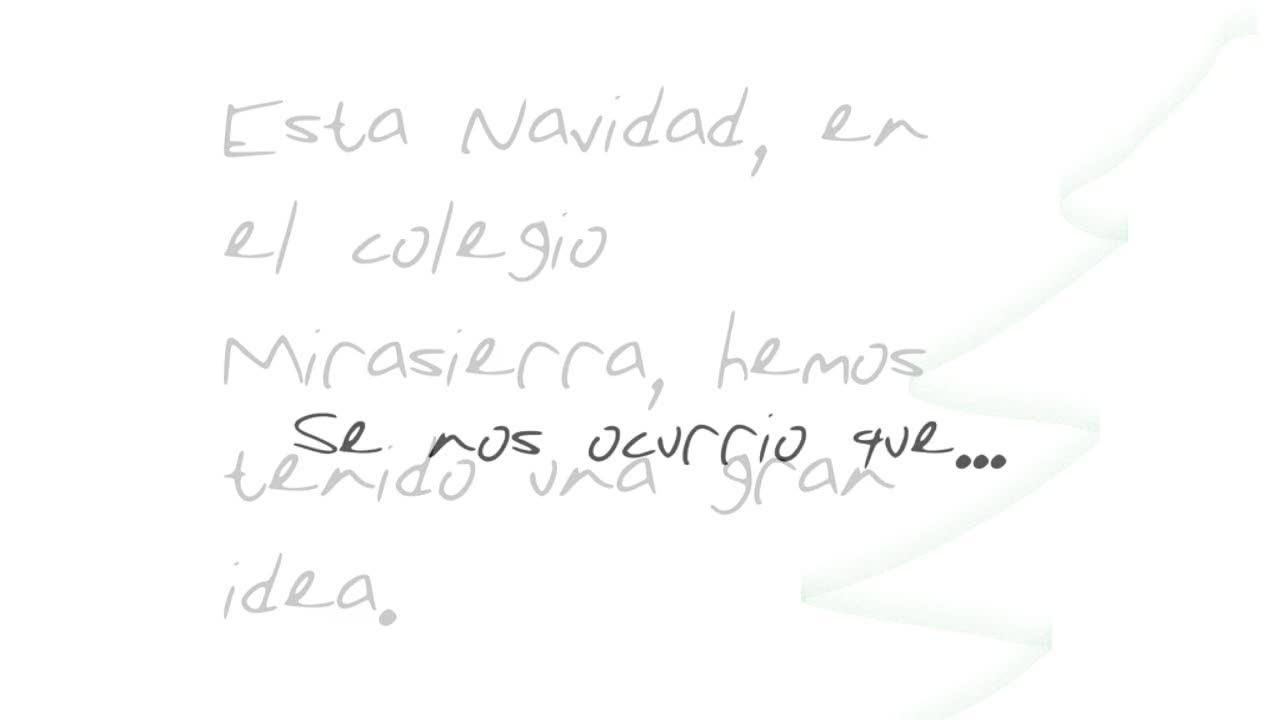 Esta Navidad, en
el colegio
Mirasierra, hemos
Se nos ocurrio que...
tenido una gran
idea.